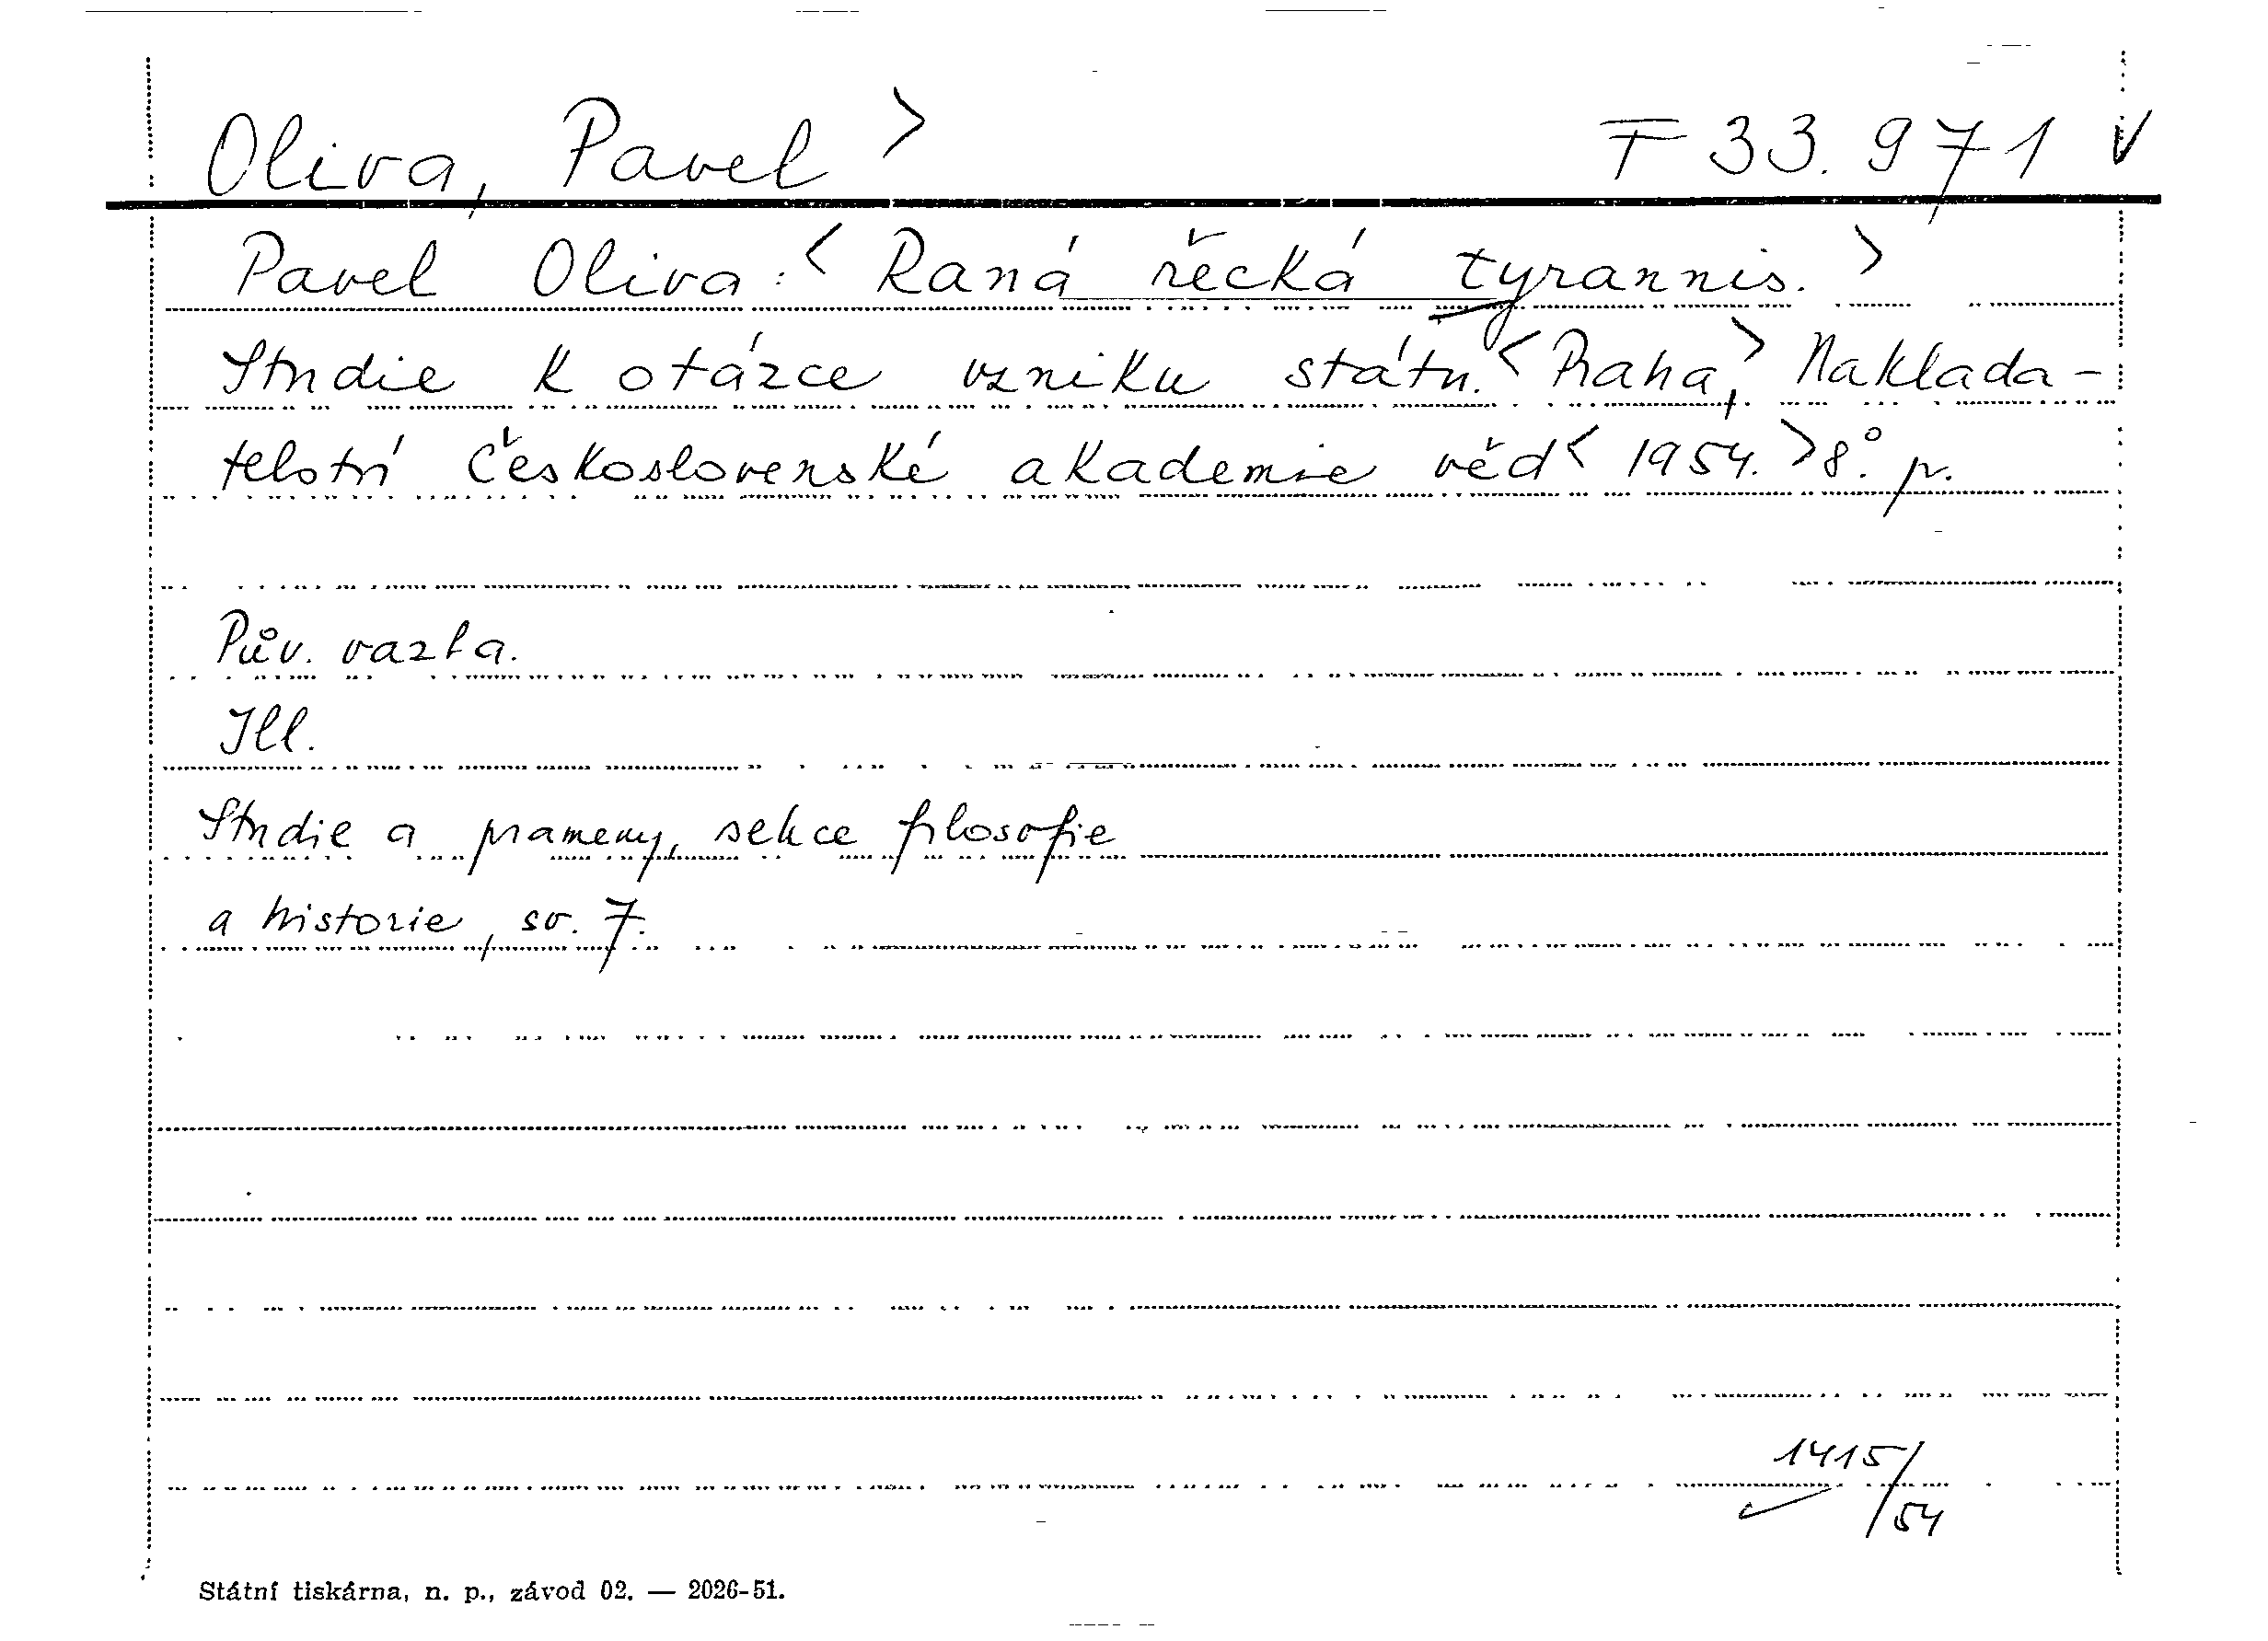 Oliva, Pavel > F 33.971 V
Pavel Oliva: < Raná řecká tyrannis. >
Studie k otázce vzniku státu. < Praha, > Naklada-
telství Československé akademie věd < 1954. > 8°. p.
Pův. vazba.
Ill.
Studie a prameny, sekce filosofie
a historie, sv. 7.
1415/
54
Státní tiskárna, n. p., závod 02. — 2026-51.